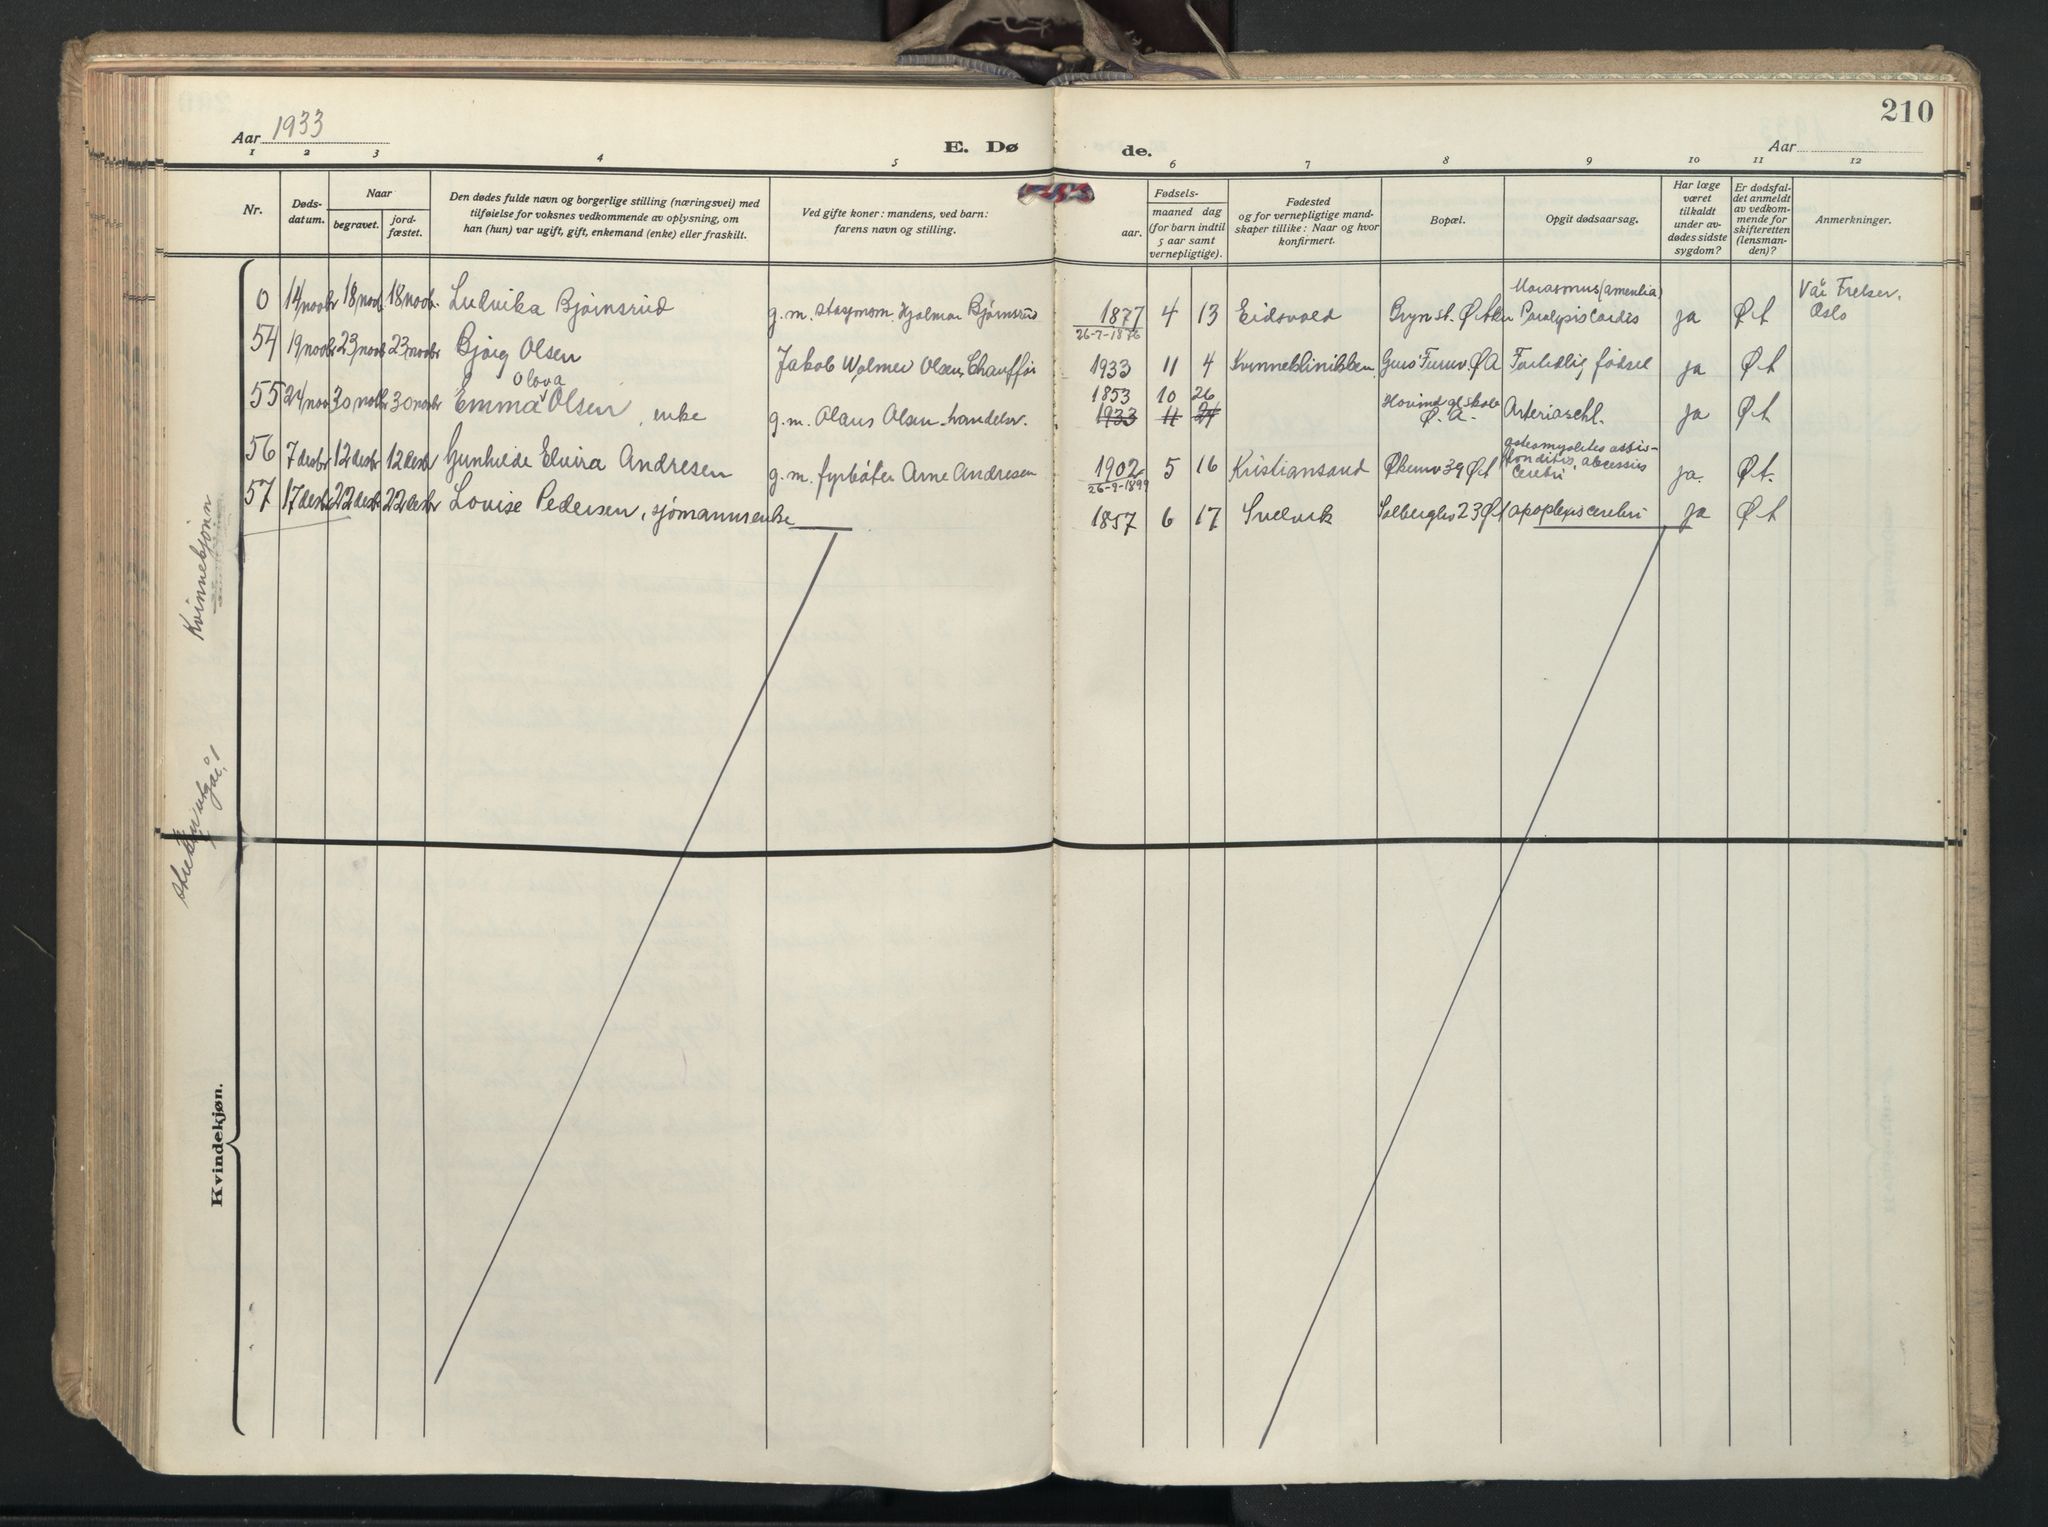 210
Aar 1933
E. Dø
de.
Aar
1 2 3 4 5 6 7 8 9 10 11 12
Nr.
Døds-
datum.
Naar
begravet.
jord-
fæstet.
Den dødes fulde navn og borgerlige stilling (næringsvei) med
tilføielse for voksnes vedkommende av oplysning, om
han (hun) var ugift, gift, enkemand (enke) eller fraskilt.
Ved gifte koner: mandens, ved barn:
farens navn og stilling.
Fødsels-
aar.
maaned dag
(for barn indtil
5 aar samt
vernepligtige).
Fødested
og for vernepligtige mand-
skaper tillike: Naar og hvor
konfirmert.
Bopæl.
Opgit dødsaarsag.
Har læge
været
tilkaldt
under av-
dødes sidste
sygdom?
Er dødsfal-
det anmeldt
av vedkom-
mende for
skifteretten
(lensman-
den)?
Anmerkninger.
0 14 novbr 18 novb. 18 novb. Ludvika Bjørnsrud g.m. Hjalmar Bjørnsrud 1877 4 13 Eidsvold Marasmus (amentia) Paralysis Cordis ja Ø A Vår Frelser. Oslo
26-7-1876
54 19 novbr 23 novb 23 novbr Bjørg Olsen Jakob Wolmer Olsen, Chauffør 1933 11 4 Kvinneklinikken Ø A Fortidlig fødsel ja Ø A
Olava
55 24 nov 30 novbr 30 novbr Emma Olsen, enke g.m. Olaus Olsen handelsr. 1853 10 26 Hovind gl skole Ø. A. Arteriaschl. ja Ø A
1933 11 24
56 7 desbr 12 desbr 12 desbr Gunhilde Elvira Andresen g.m. fyrbøter Arne Andresen 1902 5 16 Kristiansand 39 Ø A abcessus cerebri ja. Ø A.
26-9-1899
57 17 desbr 22 desbr 22 desbr Lovise Pedersen, sjømannsenke 1857 6 17 Svelvik Solbergsv 23 Ø A apoplexis cerebri ja Ø A
Kvinnekjønn
utgår!
Kvindekjøn.